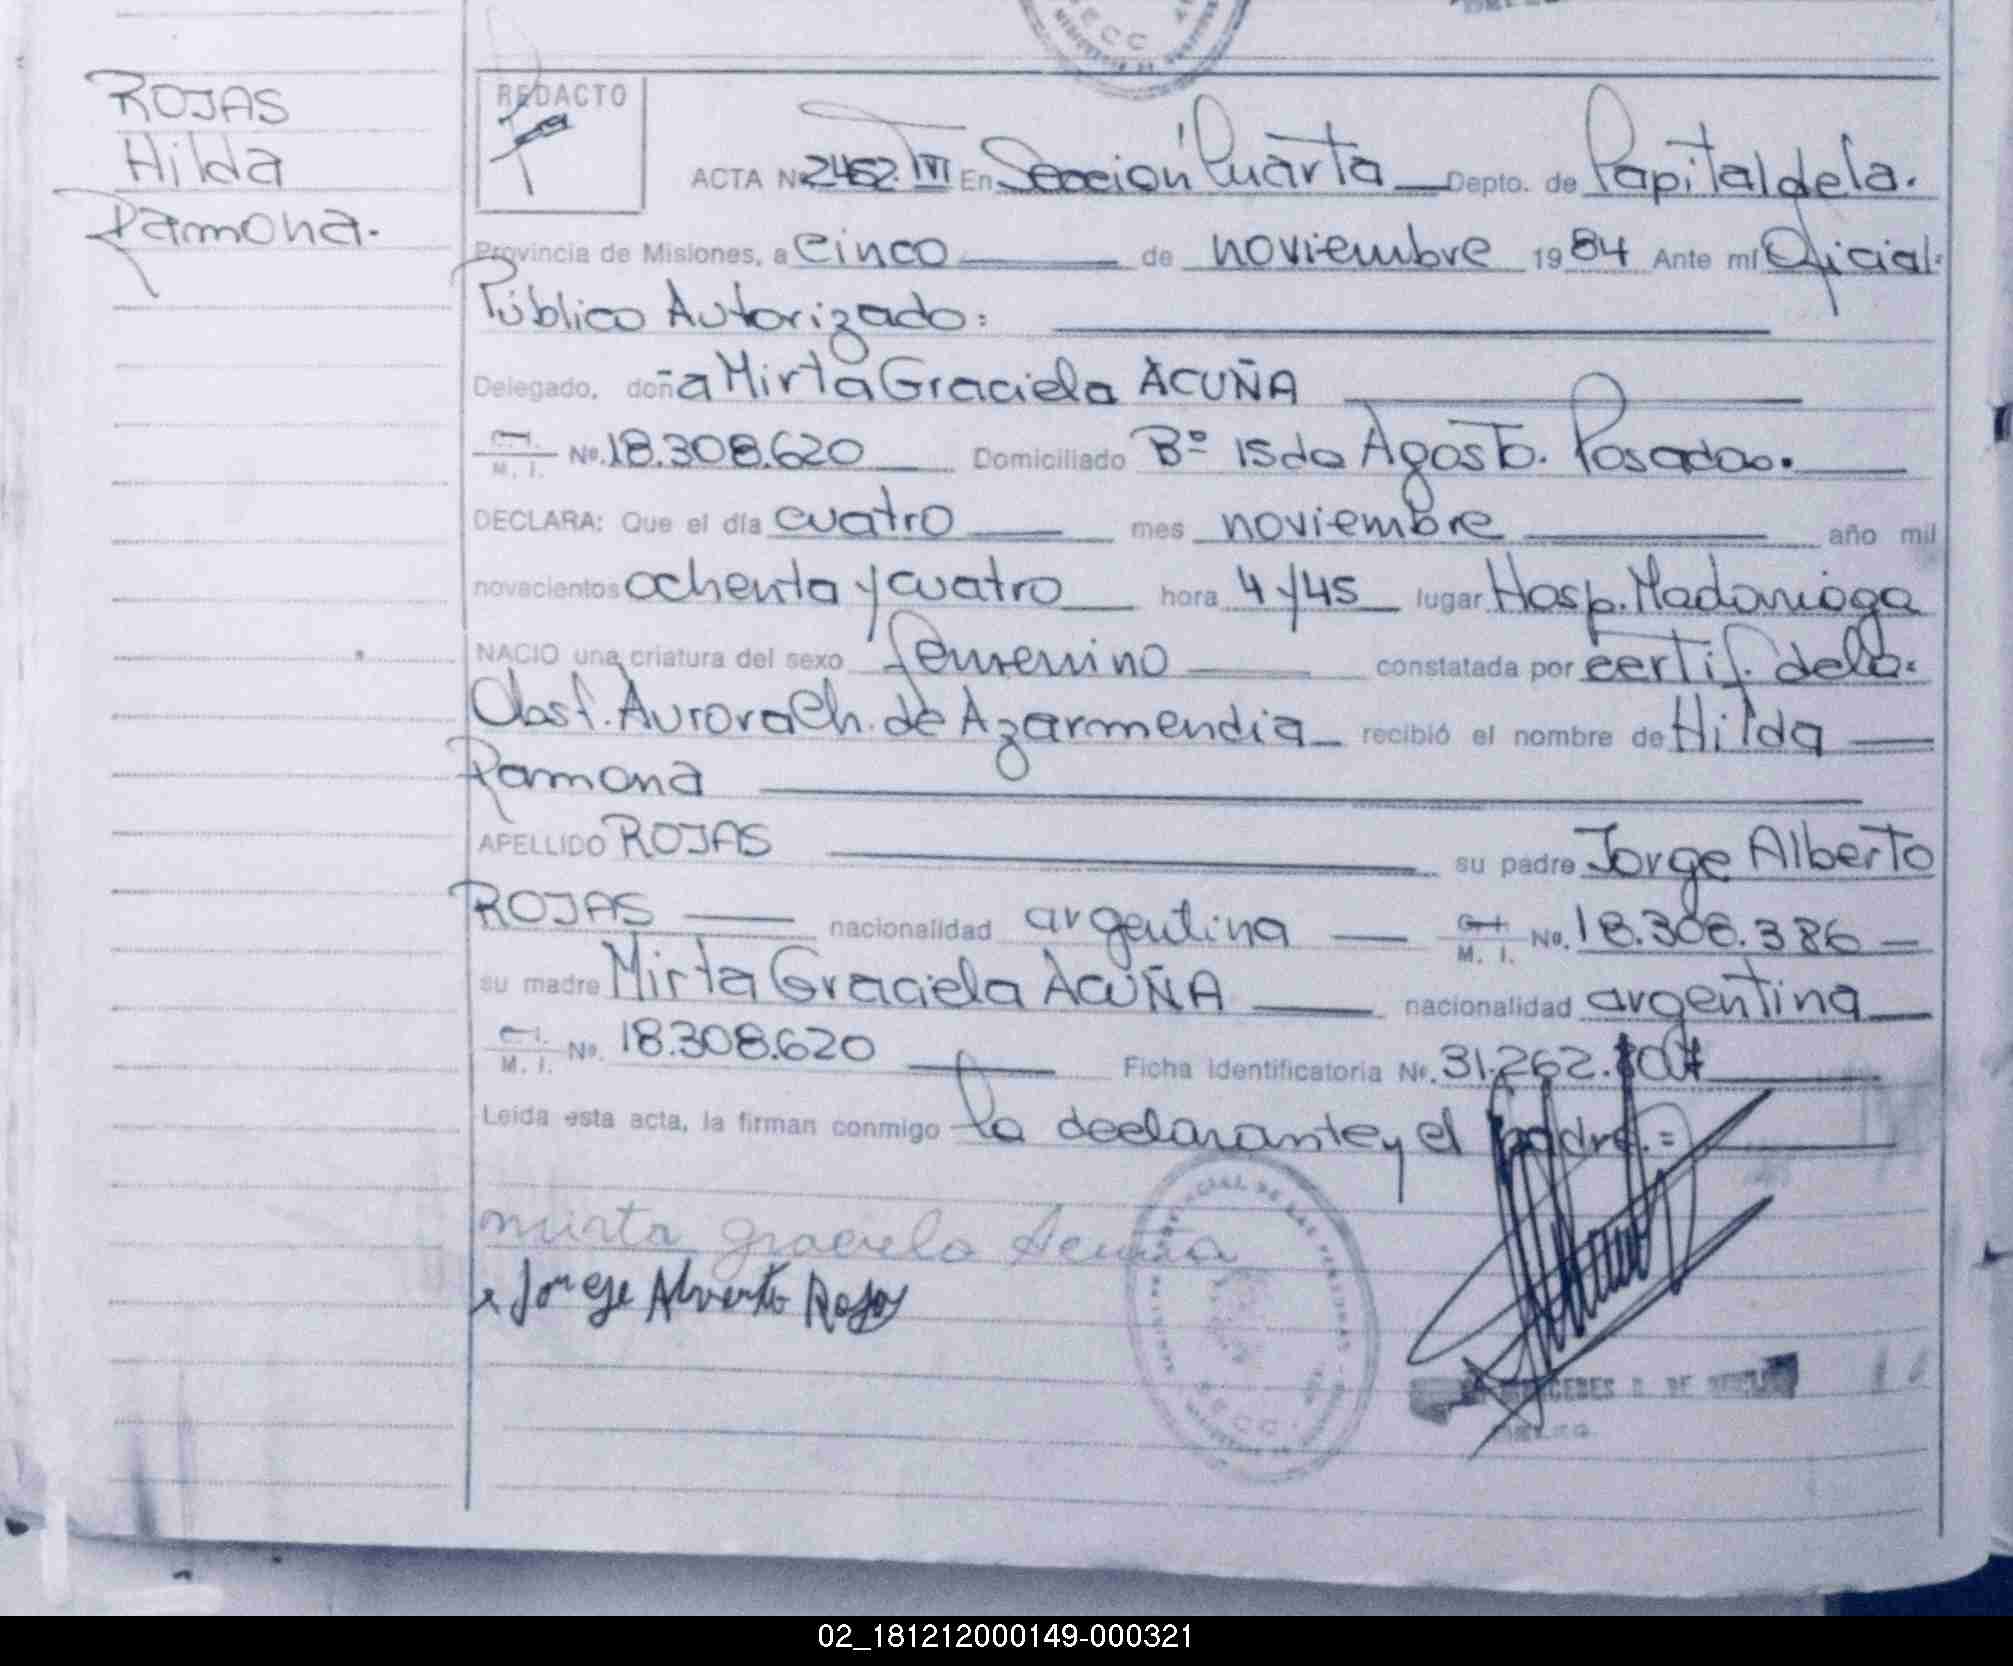 ROJAS
Hilda
Ramona.
REDACTO
ACTA Nº 2462. TVI En Sección Cuarta Depto. de Capital de la.
Provincia de Misiones, a cinco de noviembre 1984 Ante mí Oficial
Público Autorizado:
Delegado, doña Mirta Graciela ACUÑA
C.I. M. I. Nº. 18.308.620 Domiciliado Bº 15 de Agosto. Posadas.
DECLARA: Que el día cuatro mes noviembre año mil
novecientos ochenta y cuatro hora 4 y 45 lugar Hosp. Madariaga
NACIO una criatura del sexo femenino constatada por certif. de la
Obst. Aurora Ch. de Azarmendia recibió el nombre de Hilda
Ramona
APELLIDO ROJAS su padre Jorge Alberto
ROJAS nacionalidad argentina C.I. M. I. Nº. 18.308.386
su madre Mirta Graciela ACUÑA nacionalidad argentina
C.I. M. I. Nº. 18.308.620 Ficha Identificatoria Nº. 31.262.
Leída esta acta, la firman conmigo la declarante y el padre.=
mirta graciela Acuña
x Jorge Alverto Rojas
02_181212000149-000321